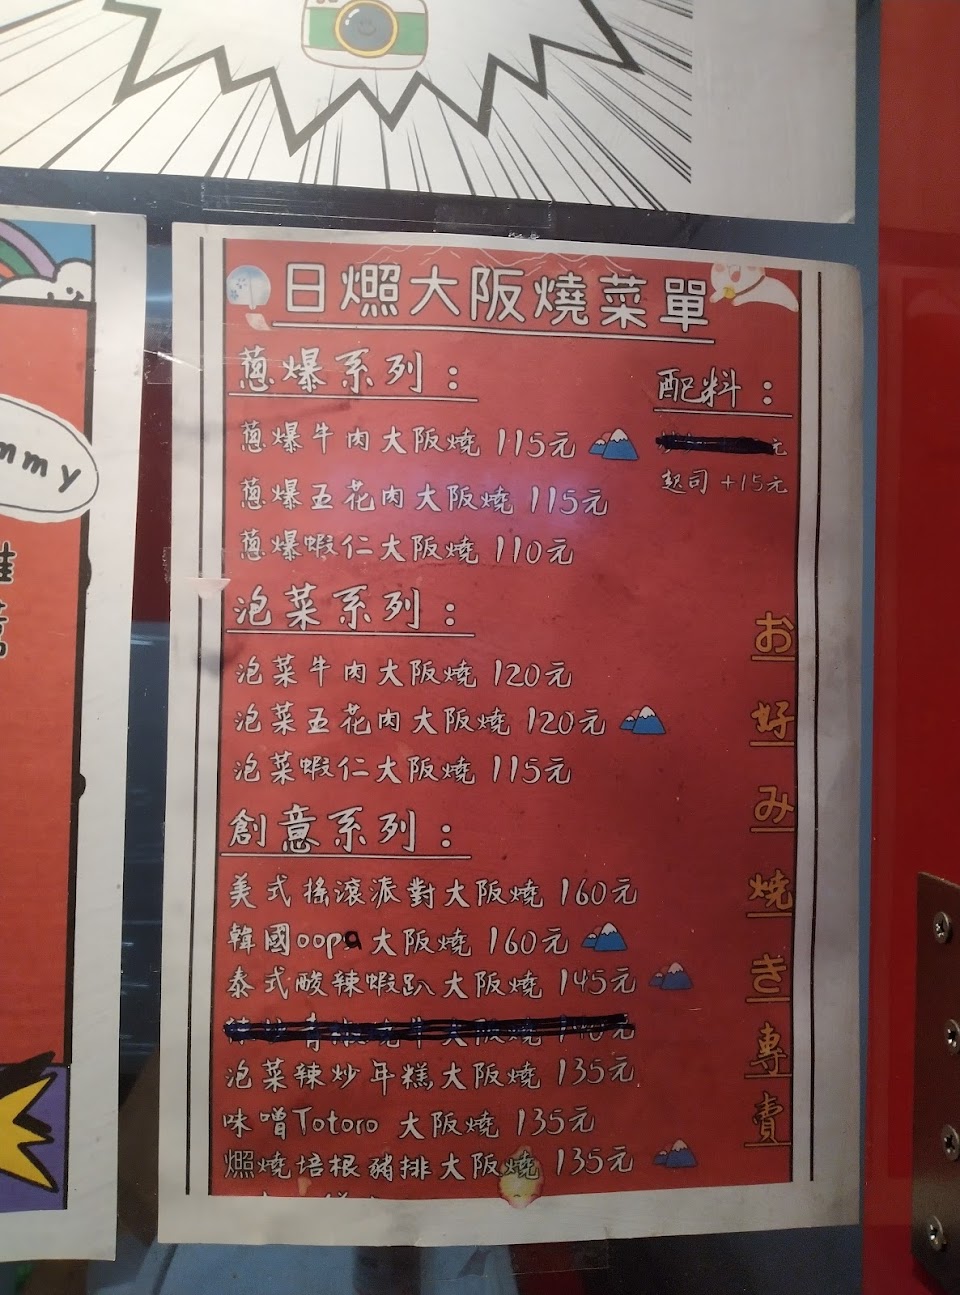 mmy
日燃大阪燒菜單
蔥爆系列：
蔥爆牛肉大阪燒 115元
蔥爆五花肉大阪燒 115元
蔥爆蝦仁大阪燒 110元
配料：
元
起司 +15元
泡菜系列：
泡菜牛肉大阪燒 120元
泡菜五花肉大阪燒 120元
泡菜蝦仁大阪燒 115元
創意系列：
美式搖滾派對大阪燒 160元
韓國oopa 大阪燒 160元
泰式酸辣蝦趴大阪燒 145元
大阪燒 140元
泡菜辣炒年糕大阪燒 135元
味噌Totoro 大阪燒 135元
燃燒培根豬排大阪燒 135元
お好み焼き專賣